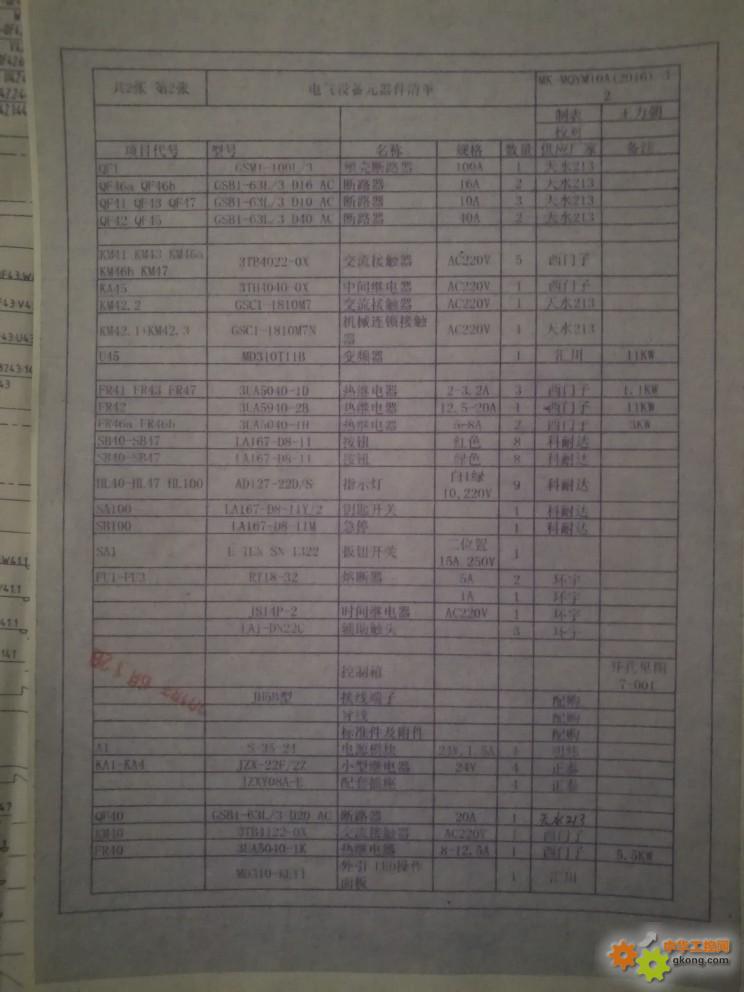 共2张 第2张 电气设备元器件清单 MK-MQYM10A(2016)
2
制表
校对
项目代号 型号 名称 规格 数量 供应厂家 备注
QF1 GSM1-100L/3 塑壳断路器 100A 1 天水213
QF46a QF46b GSB1-63L/3 D16 AC 断路器 16A 2 天水213
QF41 QF43 QF47 GSB1-63L/3 D10 AC 断路器 10A 3 天水213
QF42 QF45 GSB1-63L/3 D40 AC 断路器 40A 2 天水213
KM41 KM43 KM46a
KM46b KM47 3TB4022-0X 交流接触器 AC220V 5 西门子
KA45 3TH4040-0X 中间继电器 AC220V 1 西门子
KM42.2 GSC1-1810M7 交流接触器 AC220V 1 天水213
KM42.1+KM42.3 GSC1-1810M7N 机械连锁接触
器 AC220V 1 天水213
U45 MD310T11B 变频器 1 汇川 11KW
FR41 FR43 FR47 3UA5040-1D 热继电器 2-3.2A 3 西门子 1.1KW
FR42 3UA5940-2B 热继电器 12.5-20A 1 西门子 11KW
FR46a FR46b 3UA5040-1H 热继电器 5-8A 2 西门子 3KW
SB40-SB47 LA167-D8-11 按钮 红色 8 科耐达
SB40-SB47 LA167-D8-11 按钮 绿色 8 科耐达
HL40-HL47 HL100 AD127-22D/S 指示灯 白1绿
10,220V 9 科耐达
SA100 LA167-D8-11Y/2 钥匙开关 1 科耐达
SB100 LA167-D8-11M 急停 1 科耐达
SA1 E-TEN SN 1322 扳钮开关 二位置
15A 250V 1
FU1-FU3 RT18-32 熔断器 5A 2 环宇
1A 1 环宇
JS14P-2 时间继电器 AC220V 1 环宇
LA1-DN22C 辅助触头 3 环宇
控制箱
7-001
JH5B型 接线端子 配购
导线 配购
标准件及附件 配购
A1 S-35-24 电源模块 24V,1.5A 1 明纬
KA1-KA4 JZX-22F/2Z 小型继电器 24V 4 正泰
JZXY08A-E 配套插座 4 正泰
QF40 GSB1-63L/3 D20 AC 断路器 20A 1 天水213
KM40 3TB4122-0X 交流接触器 AC220V 1 西门子
FR40 3UA5040-1K 热继电器 8-12.5A 1 西门子 5.5KW
MD310-KEY1 外引LED操作
面板 1 汇川
中华工控网
gkong.com